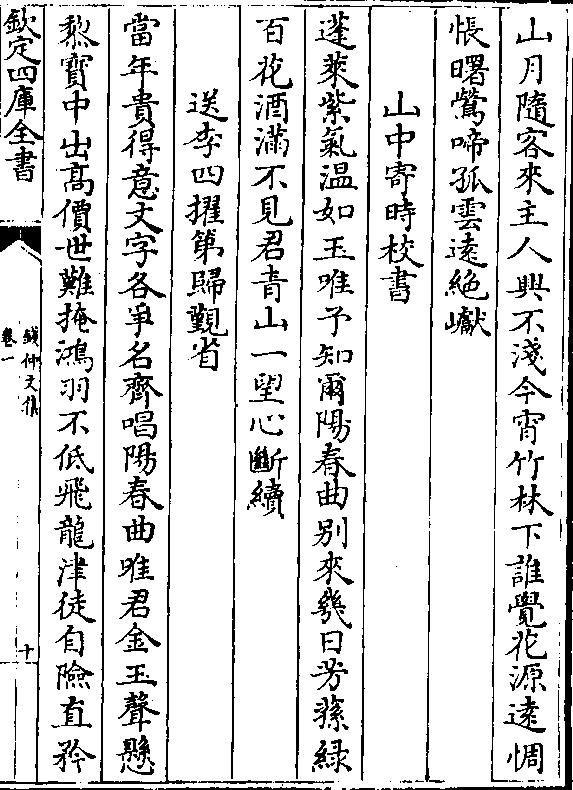 山月隨客來主人興不淺今宵竹林下誰覺花源遠惆
悵曙鶯啼孤雲遠絶巘
山中寄時校書
蓬萊紫氣温如玉唯予知爾陽春曲别來幾日芳蓀緑
百花酒滿不見君青山一望心斷續
送李四擢第歸覲省
當年貴得意文字各爭名齊唱陽春曲唯君金玉聲懸
黎寳中出髙價世難掩鴻羽不低飛龍津徒自險直矜
欽定四庫全書
錢仲文集
卷一
十